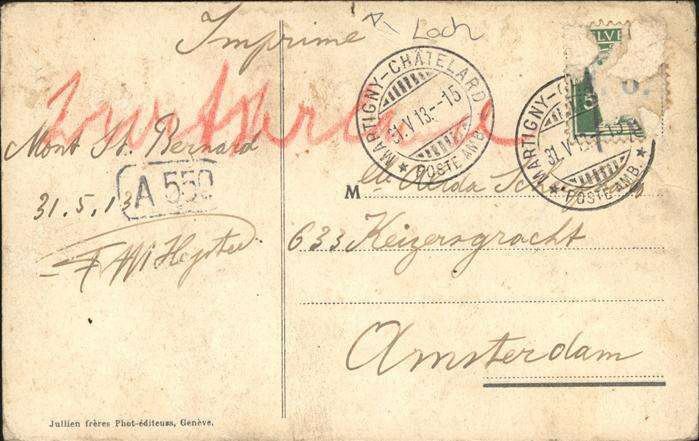 Imprimé
Loch
Mont St. Bernard
31.5.13
A 550
MARTIGNY-CHÂTELARD
31.V.13.-15
★ POSTE AMB. ★
MARTIGNY-C
31.V.13
★ POSTE AMB. ★
Mlle Alida
633 Keizersgracht
Amsterdam
Jullien frères Phot-éditeurs, Genève.